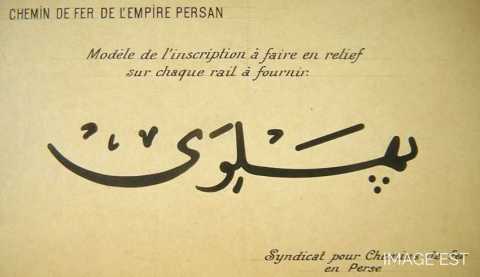 CHEMIN DE FER DE L'EMPIRE PERSAN
Modèle de l'inscription à faire en relief
sur chaque rail à fournir.
پهلوی
Syndicat pour Chemins de fer
en Perse
IMAGE'EST